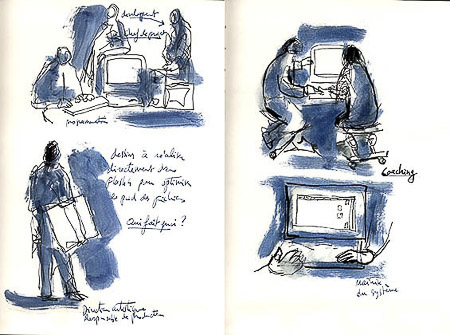 developpent
chef de projet
programmation
dessins à réaliser
directement dans
Flash pour optimiser
le poids des fichiers
Qui fait quoi ?
Direction artistique
Responsable de production
Coaching
Maîtrise
du système